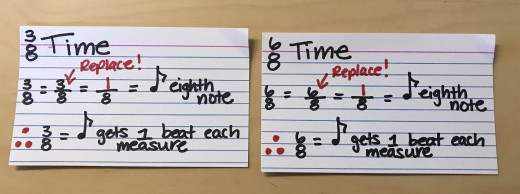 3/8 Time
Replace!
3/8 = 3/8 = 1/8 = ♪ eighth
note
∴ 3/8 = ♪ gets 1 beat each
measure
6/8 Time
Replace!
6/8 = 6/8 = 1/8 = ♪ eighth
note
∴ 6/8 = ♪ gets 1 beat each
measure